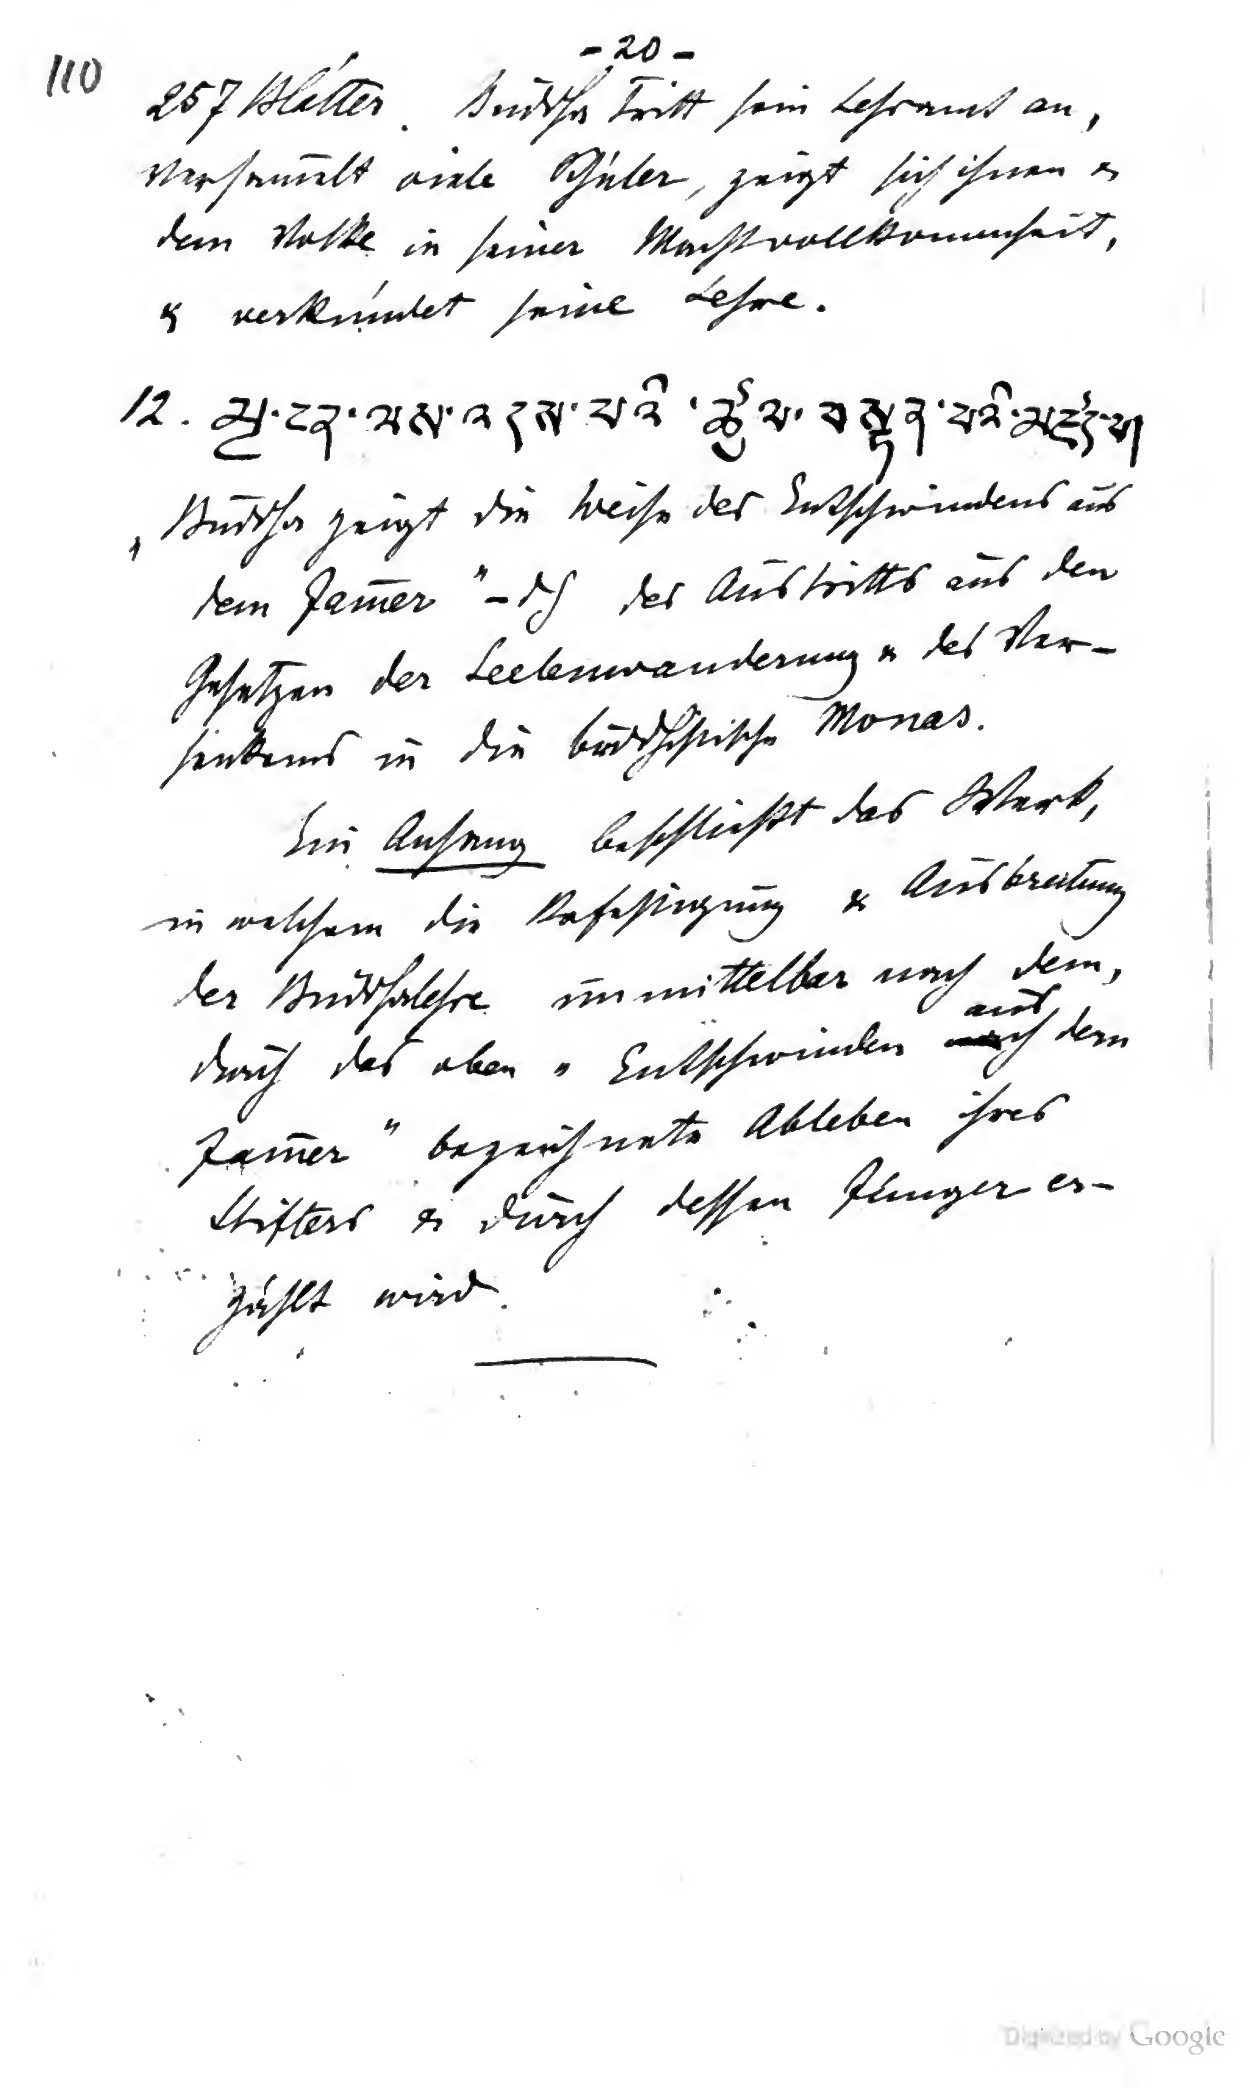 110
- 20 -
257 Blätter. Buddha tritt sein Lehramt an,
versam̅elt viele Schüler, zeigt sich ihnen &
dem Volke in seiner Machtvollkom̅enheit,
& verkündet seine Lehre.
12. མྱ་ངན་ལས་འདས་པའི་ཚུལ་བསྟན་པའི་མཛད་པ།
„Buddha zeigt die Weise des Entschwindens aus
dem Jam̅er" - dh des Austritts aus den
Gesetzen der Seelenwanderung & des Ver-
sinkens in die buddhistische Monas.
Ein Anhang beschließt das Werk,
in welchem die Befestigung & Ausbreitung
der Buddhalehre unmittelbar nach dem,
durch das oben „Entschwinden aus dem
Jam̅er" bezeichnete Ableben ihres
Stifters & durch dessen Jünger er-
zählt wird.
Digitized by Google